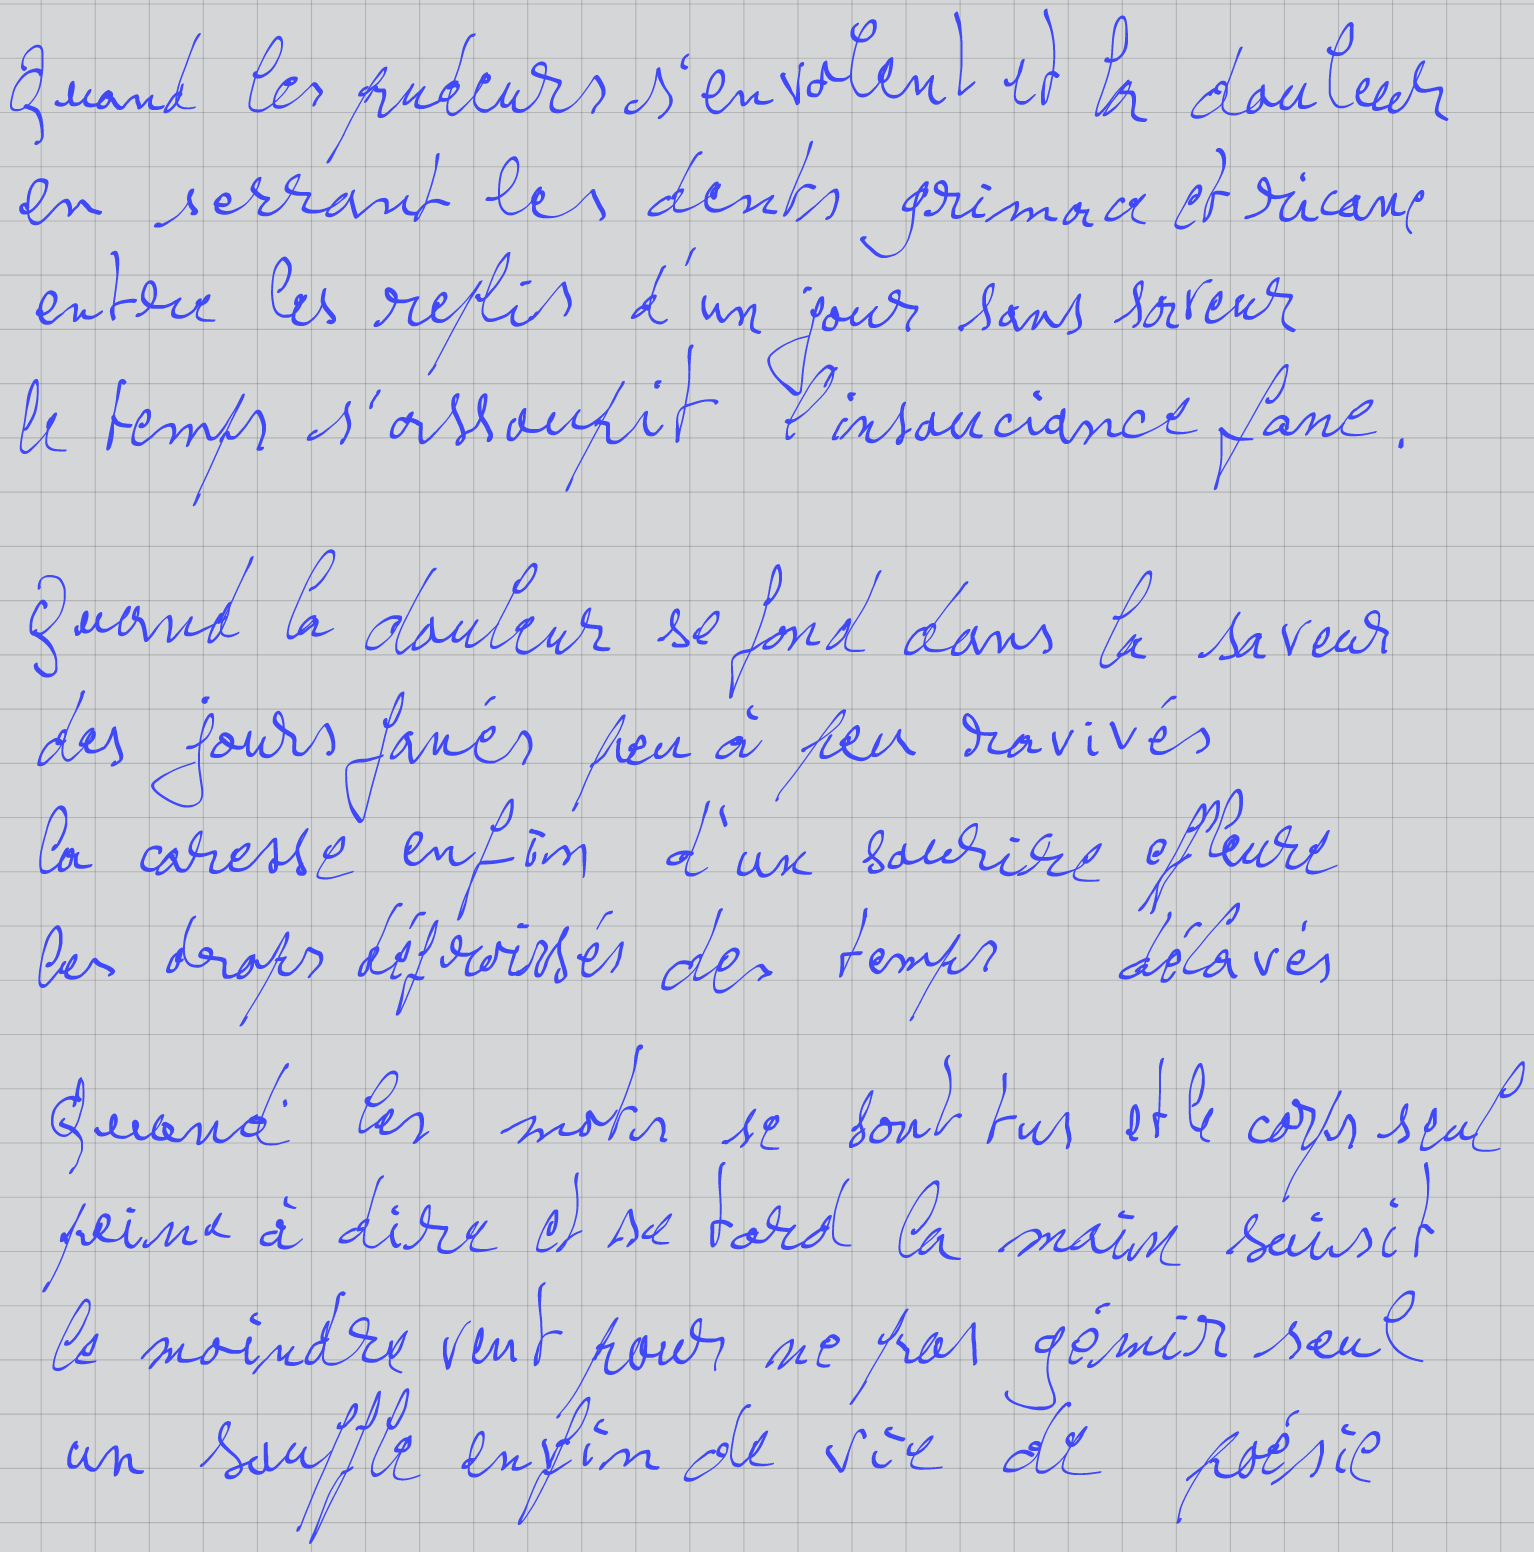 Quand les pudeurs s'envolent et la douleur
en serrant les dents grimace et ricane
entre les replis d'un jour sans saveur
le temps s'assoupit l'insouciance fane.
Quand la douleur se fond dans la saveur
des jours fanés peu à peu ravivés
la caresse enfin d'un sourire effleure
les draps défroissés des temps délavés
Quand les mots se sont tus et le corps seul
peine à dire et se tord la main saisit
le moindre vent pour ne pas gémir seul
un souffle enfin de vie de poésie